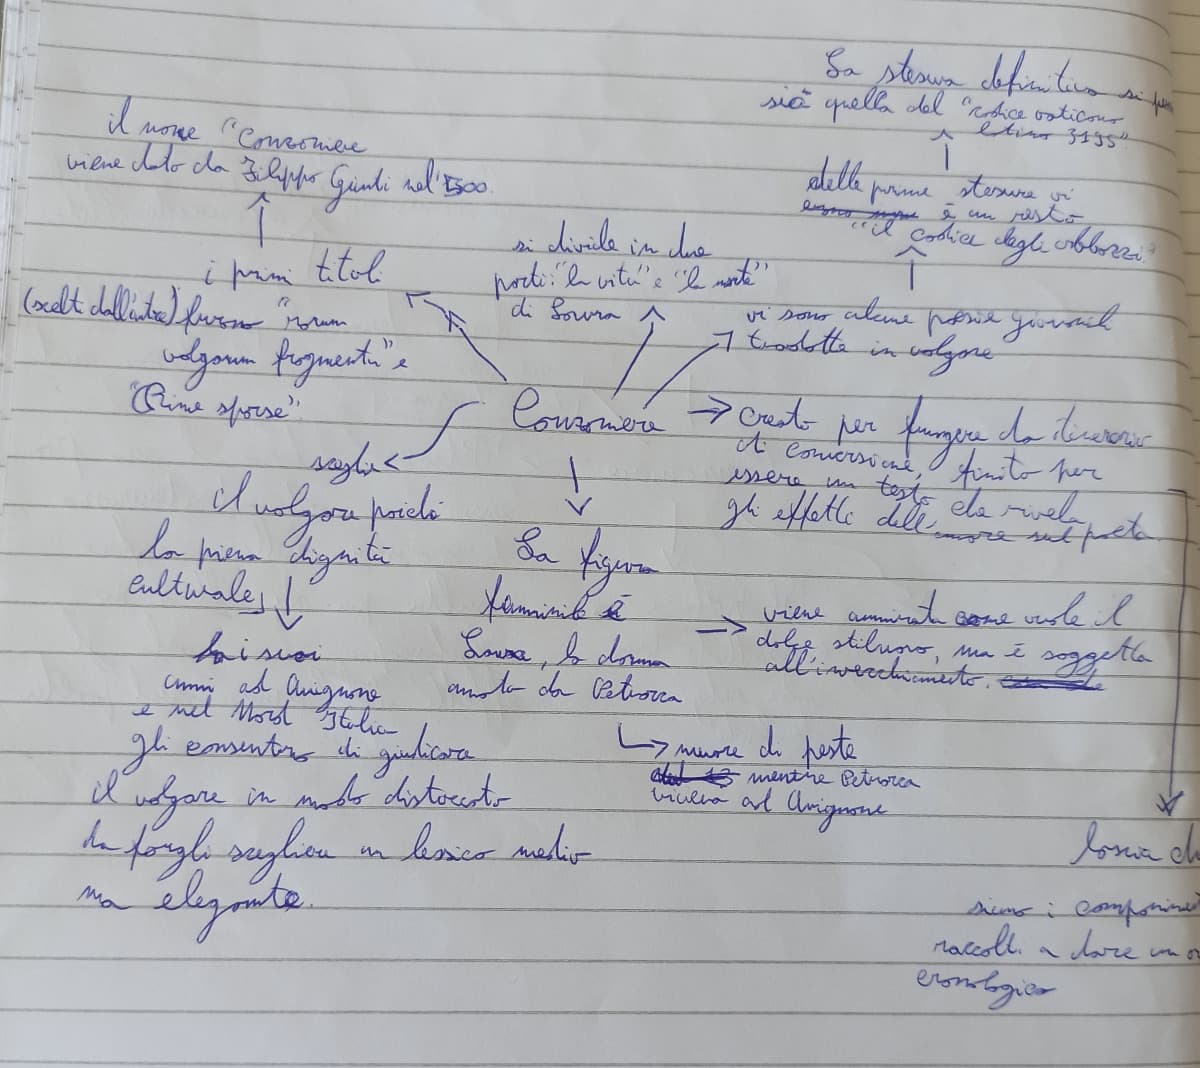 La stesura definitiva si pensa
sia quella del "codice vaticano
latino 3195"
il nome "Canzoniere
viene dato da Filippo Giunti nel'500.
delle prime stesure vi
è un resto
"il codice degli abbozzi"
i primi titoli
(scelti dall'autore) furono "rerum
volgarum fragmenta" e
"Rime sparse".
si divide in due
parti: "la vita" e "la morte"
di Laura
vi sono alcune poesie giovanili
tradotte in volgare
Canzoniere
creato per fungere da itinerario
di conversione, finito per
essere un testo che rivela
gli effetti dell'amore sul poeta
sceglie
il volgare poiché
ha piena dignità
culturale,
i suoi
anni ad Avignone
e nel Nord Italia
gli consentono di giudicare
il volgare in modo distaccato
da fargli scegliere un lessico medio
ma elegante.
La figura
femminile è
Laura, la donna
amata da Petrarca
viene ammirata come vuole il
dolce stilnovo, ma è soggetta
all'invecchiamento.
muore di peste
mentre Petrarca
viveva ad Avignone
lascia ch
siano i componimenti
raccolti a dare un or
cronologico